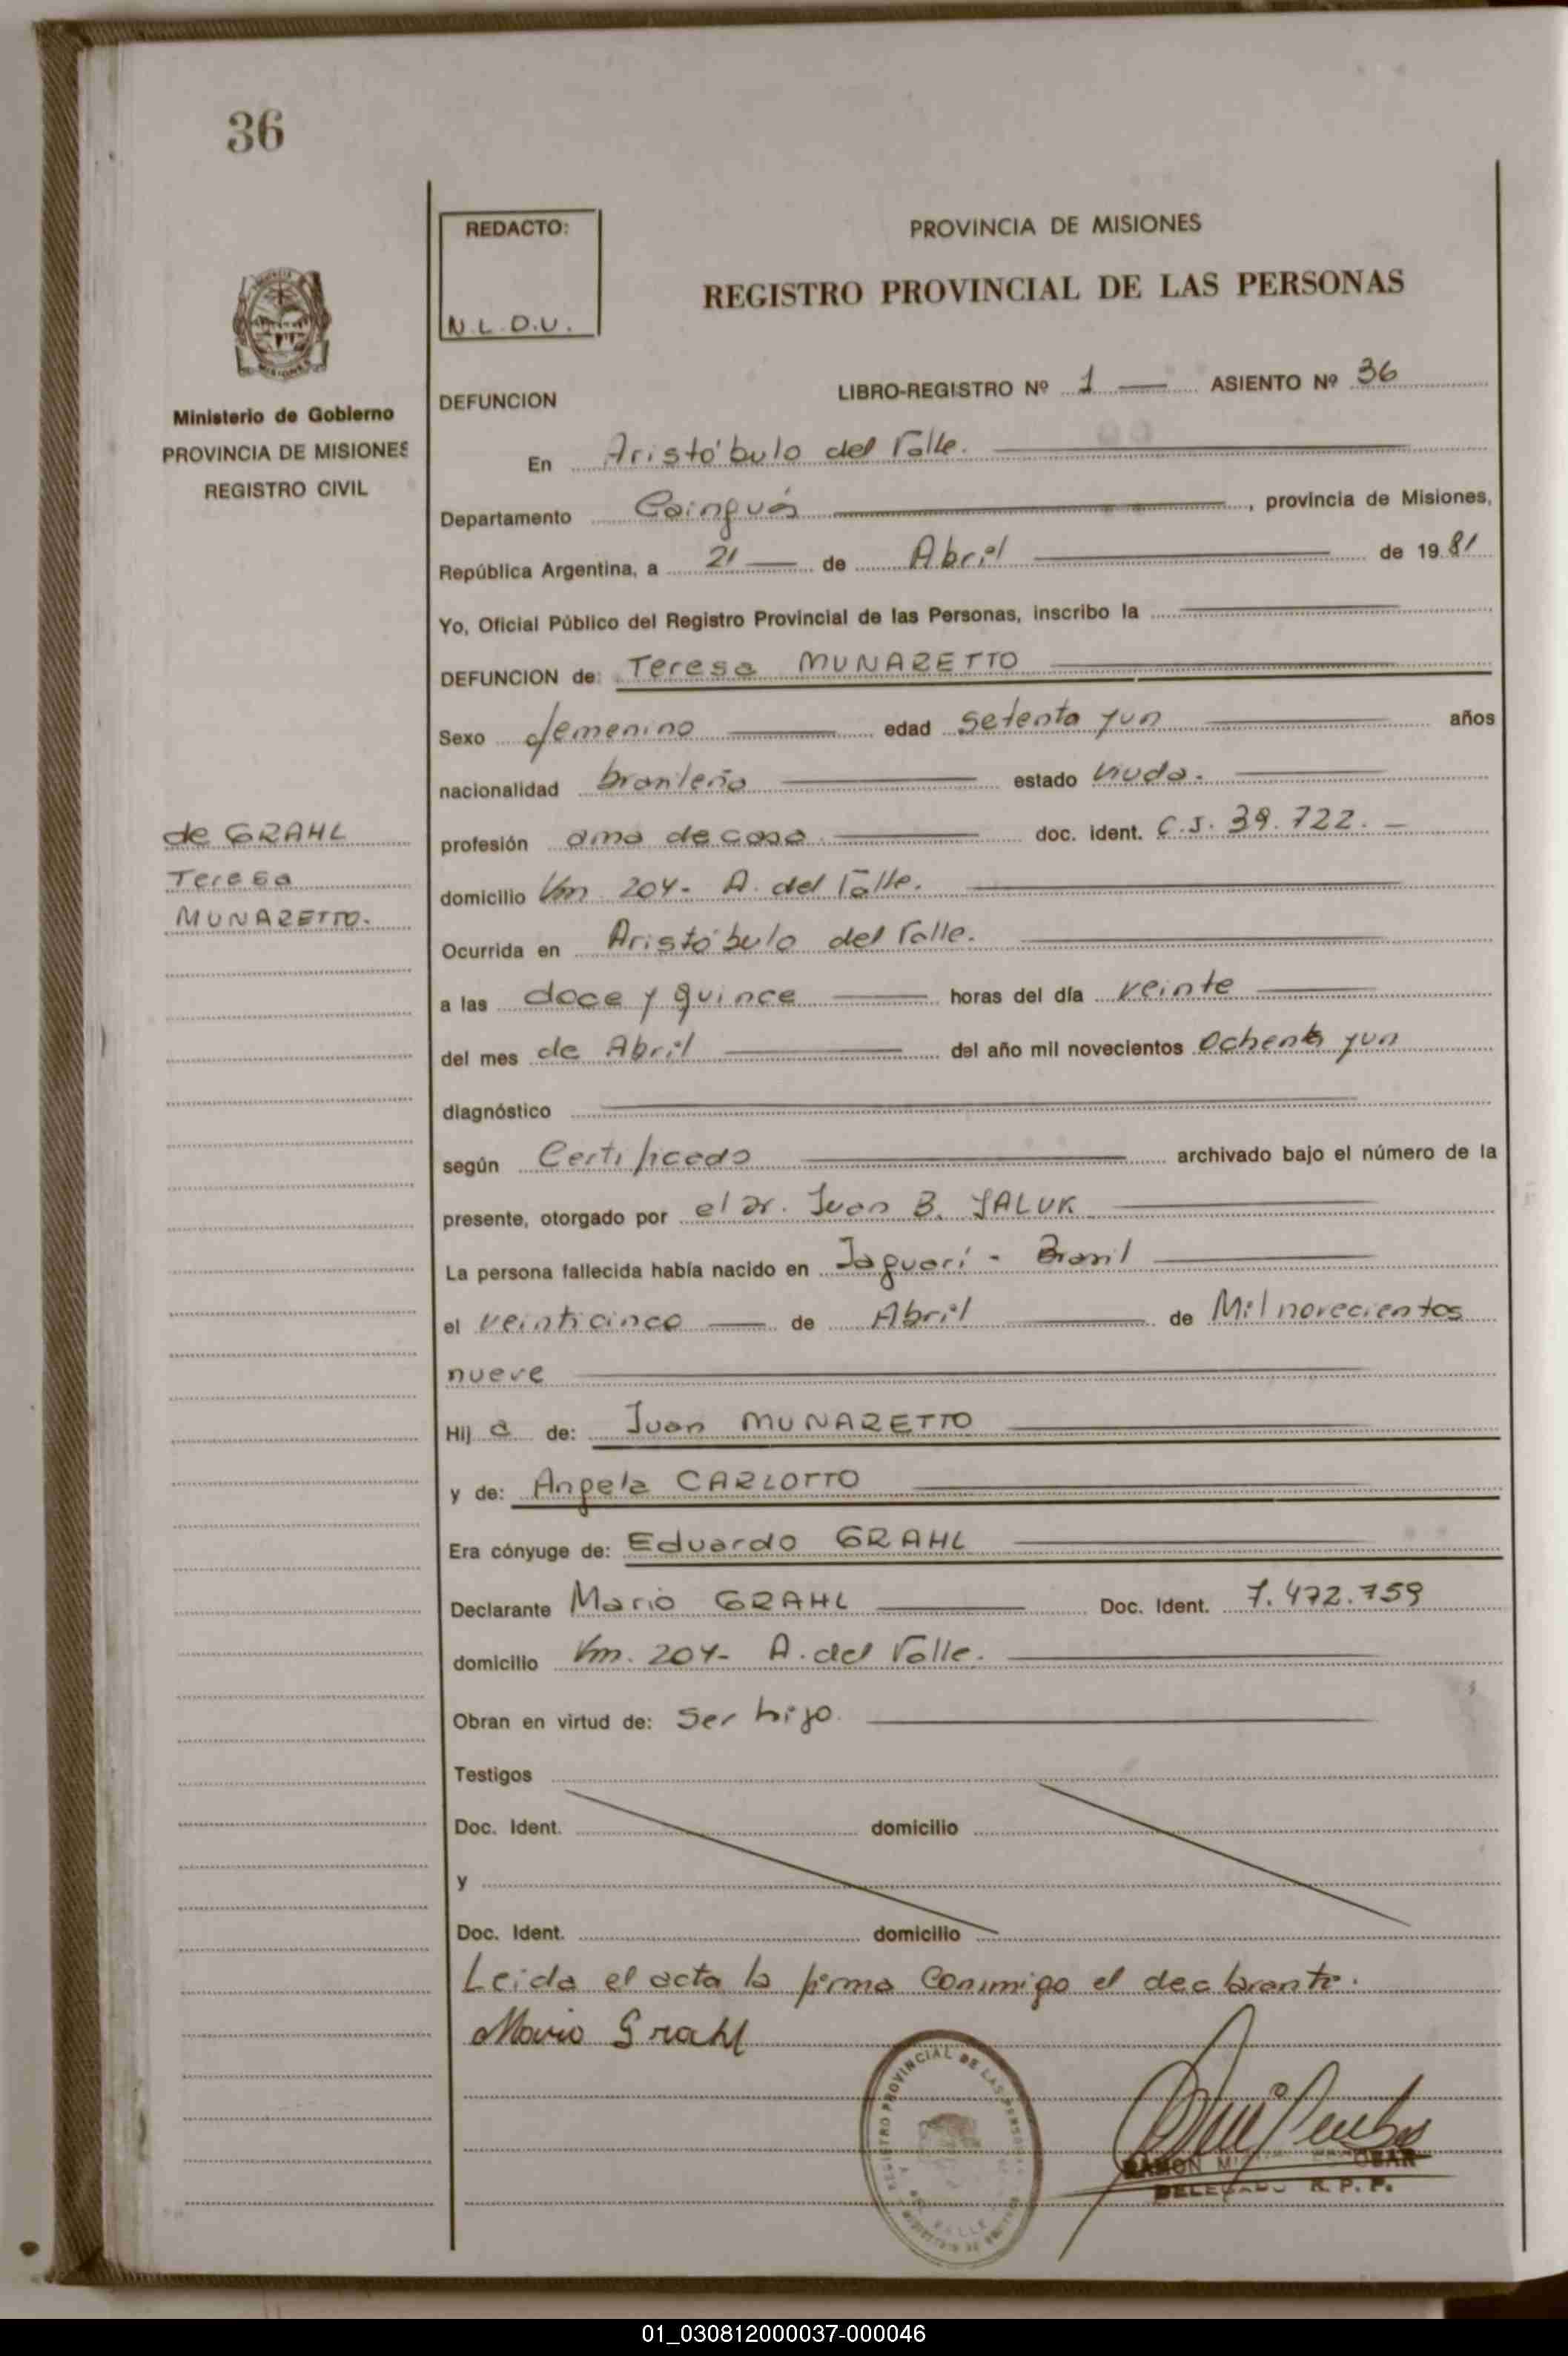 36
REDACTO:
N.L.D.U.
PROVINCIA DE MISIONES
REGISTRO PROVINCIAL DE LAS PERSONAS
Ministerio de Gobierno
PROVINCIA DE MISIONES
REGISTRO CIVIL
DEFUNCION LIBRO-REGISTRO Nº 1 ASIENTO Nº 36
En Aristóbulo del Valle.
Departamento Cainguás, provincia de Misiones,
República Argentina, a 21 de Abril de 1981
Yo, Oficial Público del Registro Provincial de las Personas, inscribo la
DEFUNCION de: Teresa MUNARETTO
Sexo femenino edad setenta y un años
nacionalidad brasileña estado viuda.
de GRAHL
Teresa
MUNARETTO.
profesión ama de casa doc. ident. C.I. 39.722.-
domicilio Km 204- A. del Valle.
Ocurrida en Aristóbulo del Valle.
a las doce y quince horas del día veinte
del mes de Abril del año mil novecientos Ochenta y un
diagnóstico
según Certificado archivado bajo el número de la
presente, otorgado por el Dr. Juan B. YALUK
La persona fallecida había nacido en Jaguarí - Brasil
el veinticinco de Abril de Mil novecientos
nueve
Hij a de: Juan MUNARETTO
y de: Angela CARLOTTO
Era cónyuge de: Eduardo GRAHL
Declarante Mario GRAHL Doc. Ident. 7.472.759
domicilio Km. 204- A. del Valle.
Obran en virtud de: Ser hijo.
Testigos
Doc. Ident. domicilio
y
Doc. Ident. domicilio
Leida el acta la firma Conmigo el declarante.
Mario Grahl
REGISTRO PROVINCIAL DE LAS PERSONAS
RAMON ESCOBAR
DELEGADO R. P. P.
01_030812000037-000046